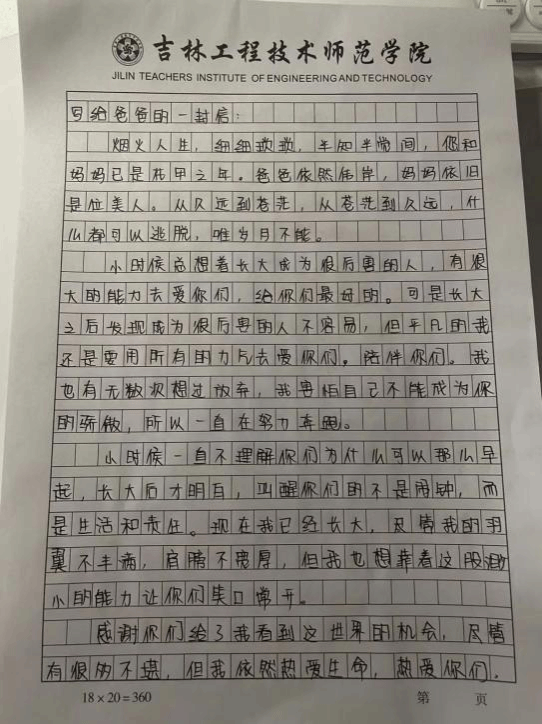 吉林工程技术师范学院
JILIN TEACHERS INSTITUTE OF ENGINEERING AND TECHNOLOGY
写给爸爸的一封信：
烟火人生，细细琐琐，半知半觉间，您和
妈妈已是花甲之年。爸爸依然伟岸，妈妈依旧
是位美人。从久远到苍茫，从苍茫到久远，什
么都可以逃脱，唯岁月不能。
小时候总想着长大成为很厉害的人，有很
大的能力去爱你们，给你们最好的。可是长大
之后发现成为很厉害的人不容易，但平凡的我
还是要用所有的力气去爱你们，陪伴你们。我
也有无数次想过放弃，我害怕自己不能成为你
的骄傲，所以一直在努力奔跑。
小时候一直不理解你们为什么可以那么早
起，长大后才明白，叫醒你们的不是闹钟，而
是生活和责任。现在我已经长大，尽管我的羽
翼不丰满，肩膀不宽厚，但我也想靠着这股渺
小的能力让你们笑口常开。
感谢你们给了我看到这世界的机会，尽管
有很多不堪，但我依然热爱生命，热爱你们。
18×20=360
第 页